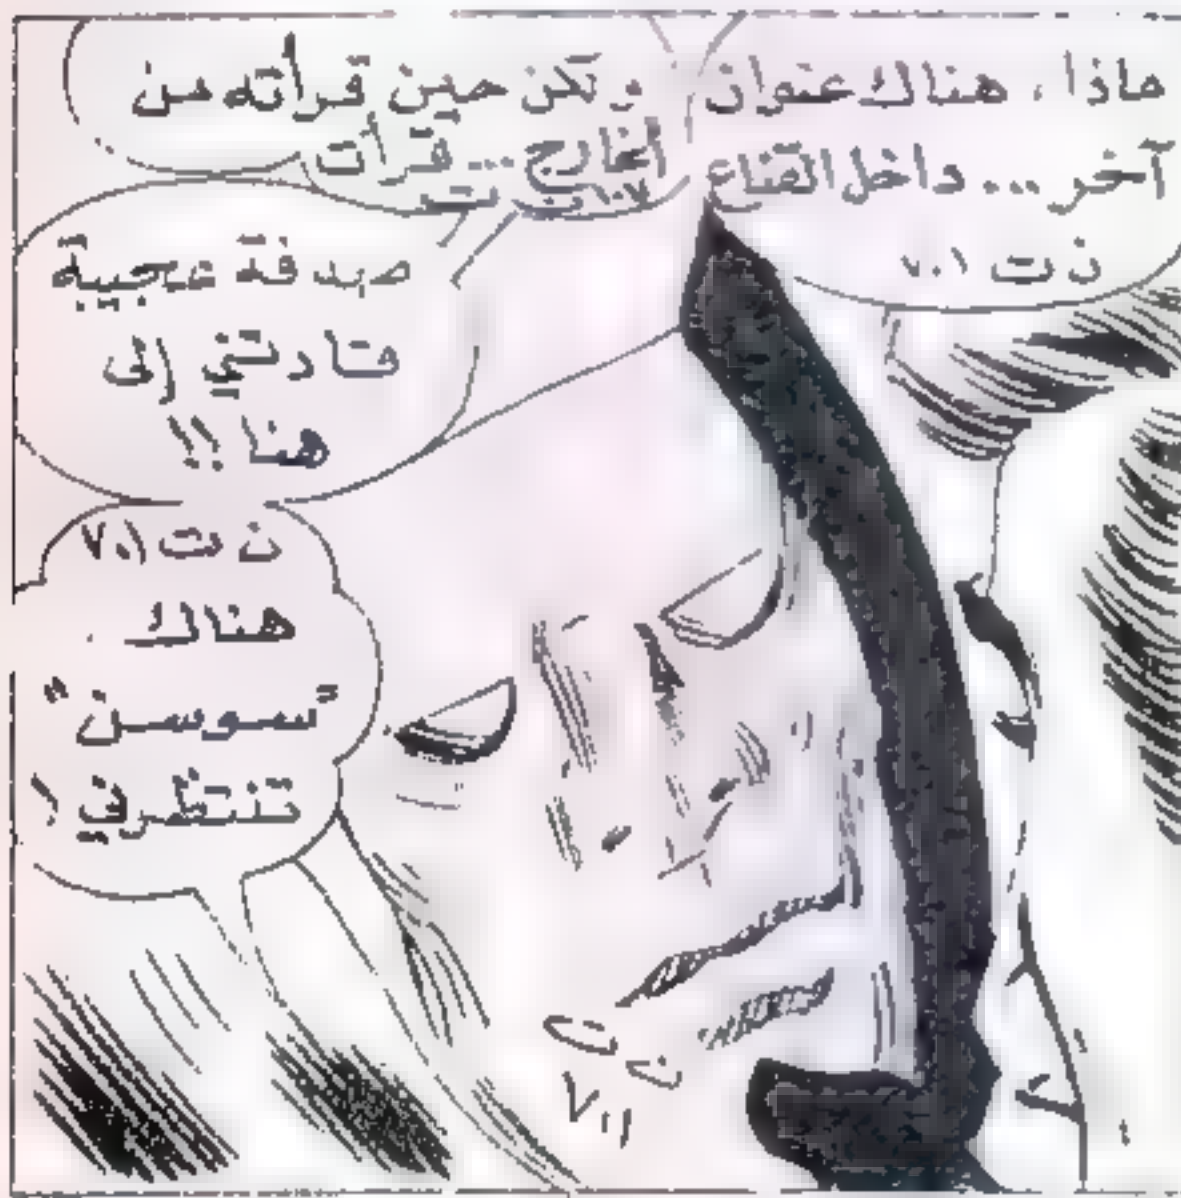 ماذا، هناك عنوان
آخر... داخل القناع
ن ت ٧٠١
ولكن حين قرأته من
الخارج... قرأت
١٠٧ ن ت
صدفة عجيبة
قادتني إلى
هنا !!
ن ت ٧٠١
هناك
"سوسن"
تنتظرني !
ن ت
٧٠١